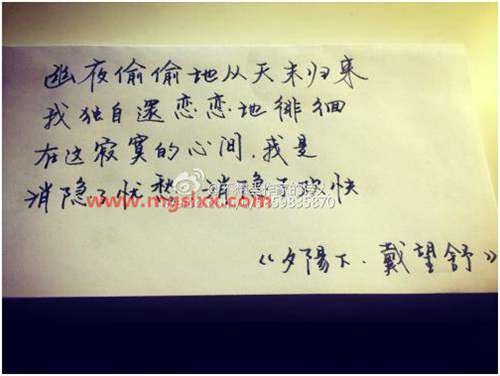 幽夜偷偷地从天末归来
我独自還恋恋地徘徊
在这寂寞的心间,我是
消隐了忧愁,消隐了欢快
www.mgslxx.com
《夕陽下·戴望舒》